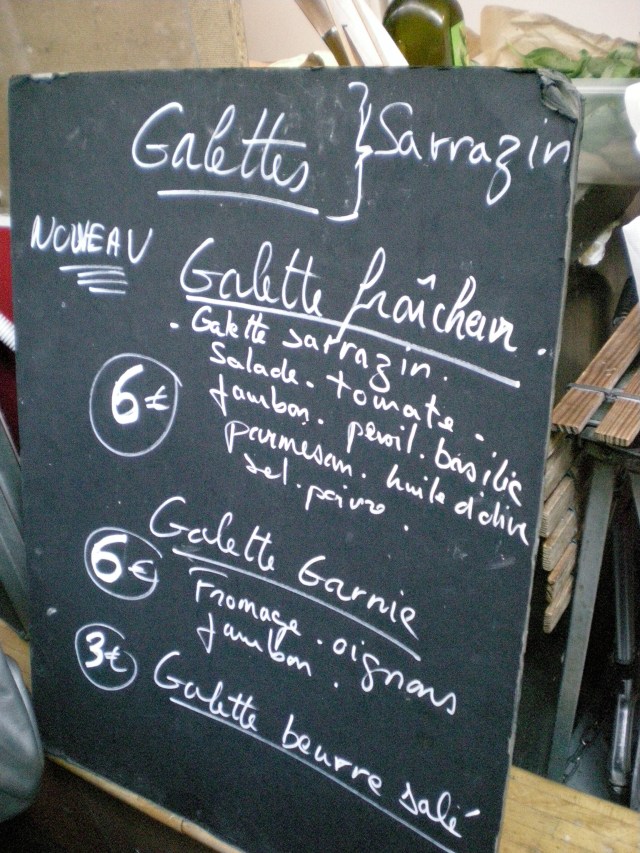 Galettes } Sarrazin
NOUVEAU
Galette fraîcheur.
. Galette sarrazin.
Salade. tomate.
6€
Jambon. persil. basilic
parmesan. huile d'olive
sel. poivre.
Galette Garnie
6€
Fromage. oignons
Jambon.
3€
Galette beurre salé